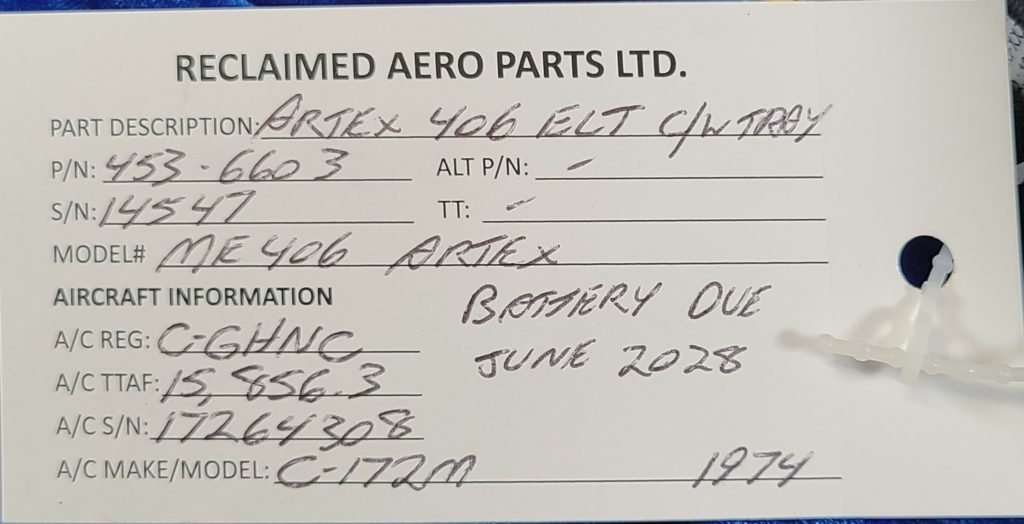 RECLAIMED AERO PARTS LTD.
PART DESCRIPTION: ARTEX 406 ELT C/W TRAY
P/N: 453-6603 ALT P/N: -
S/N: 14547 TT: -
MODEL# ME406 ARTEX
AIRCRAFT INFORMATION BATTERY DUE
A/C REG: C-GHNC JUNE 2028
A/C TTAF: 15,856.3
A/C S/N: 17264308
A/C MAKE/MODEL: C-172M 1974